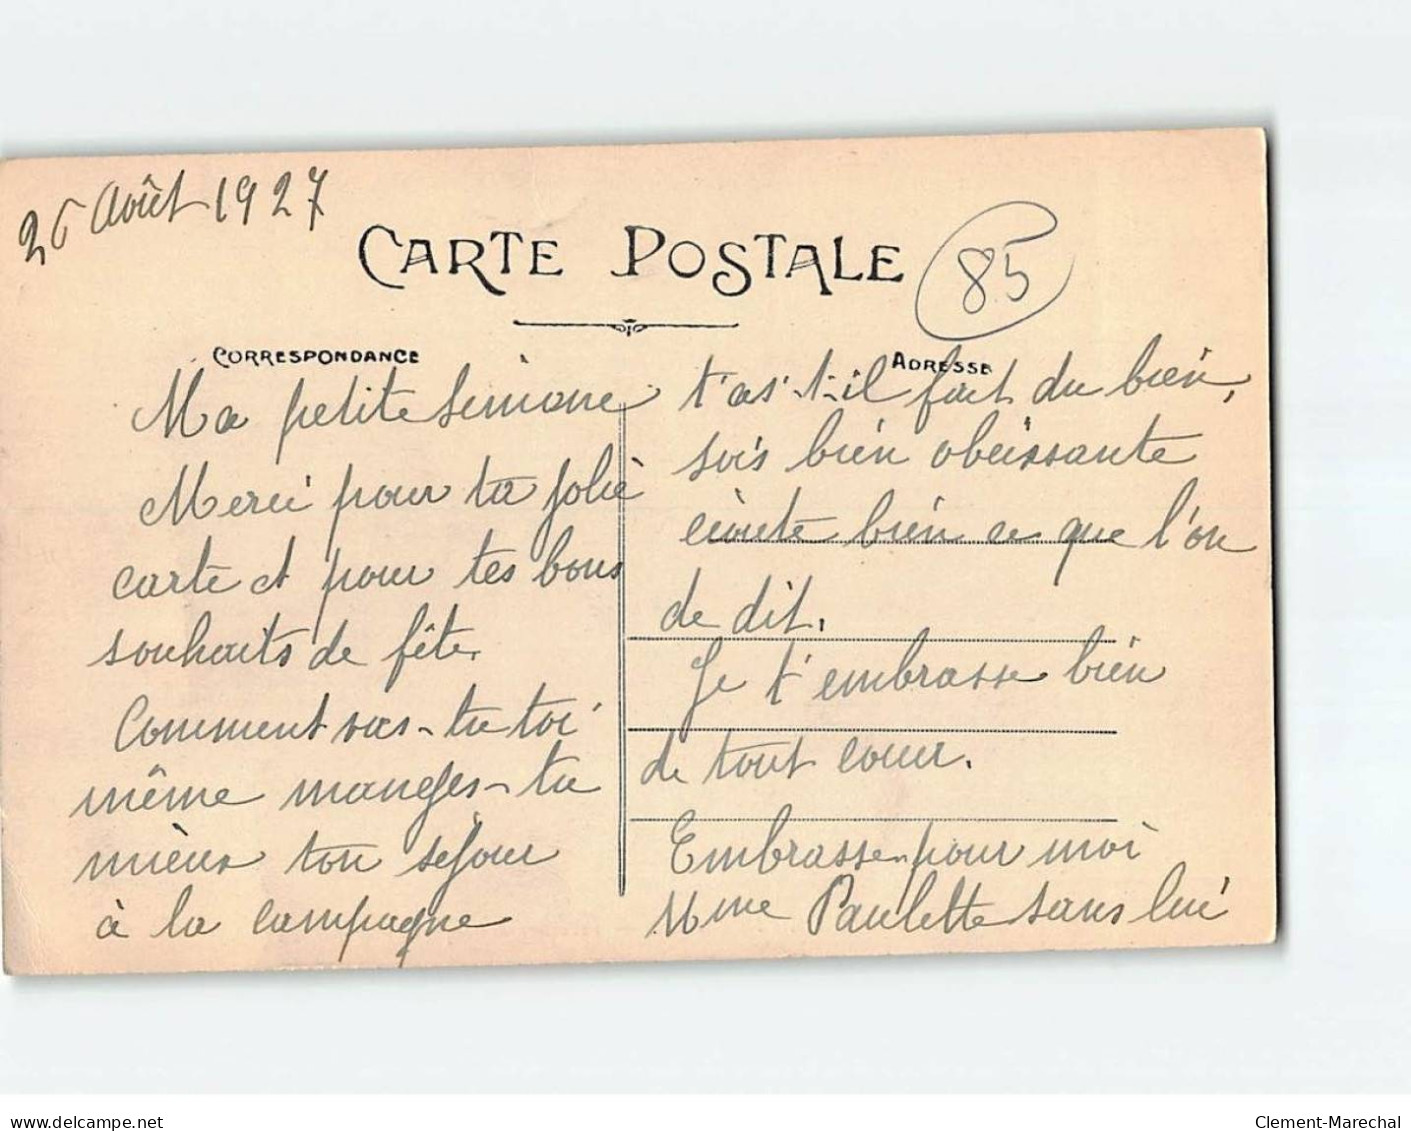 26 Août 1927
CARTE POSTALE
85
CORRESPONDANCE
ADRESSE
Ma petite Simone
Merci pour ta jolie
carte et pour tes bons
souhaits de fête.
Comment vas-tu toi
même manges-tu
mieux ton séjour
à la campagne
t'as-t-il fait du bien,
sois bien obéissante
écoute bien ce que l'on
de dit.
Je t'embrasse bien
de tout cœur.
Embrasse pour moi
Mme Paulette sans lui
delcampe.net
Clement-Marechal